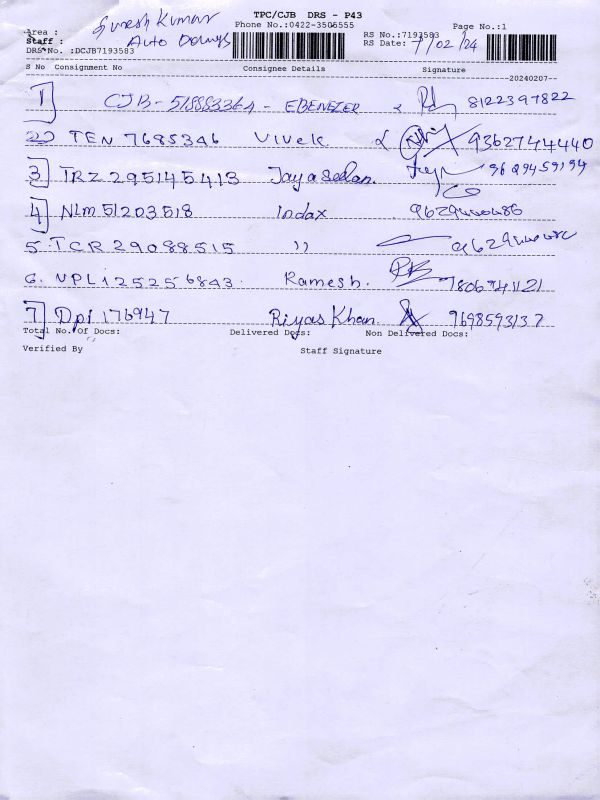 TPC/CJB DRS - P43
Suresh Kumar
Area : Phone No.:0422-3506555 Page No.:1
Staff : Auto RS No.:7193583
RS Date: 7/02/24
DRS No. :DCJB7193583
S No Consignment No Consignee Details Signature
20240207
1 CJB-518883364 - EBENEZER 8122397822
2 TEN 7685346 Vivek 9362744440
3 TRZ 295145413 Jayaseelan. 9629459194
4 NLM 51203518 Indax
5 TCR 29088515 ,,
6. NPL125256843. Ramesh. 7806741121
7 Dpi 176947 Riyas Khan 9698593137
Total No. Of Docs: Delivered Docs: Non Delivered Docs:
Verified By Staff Signature